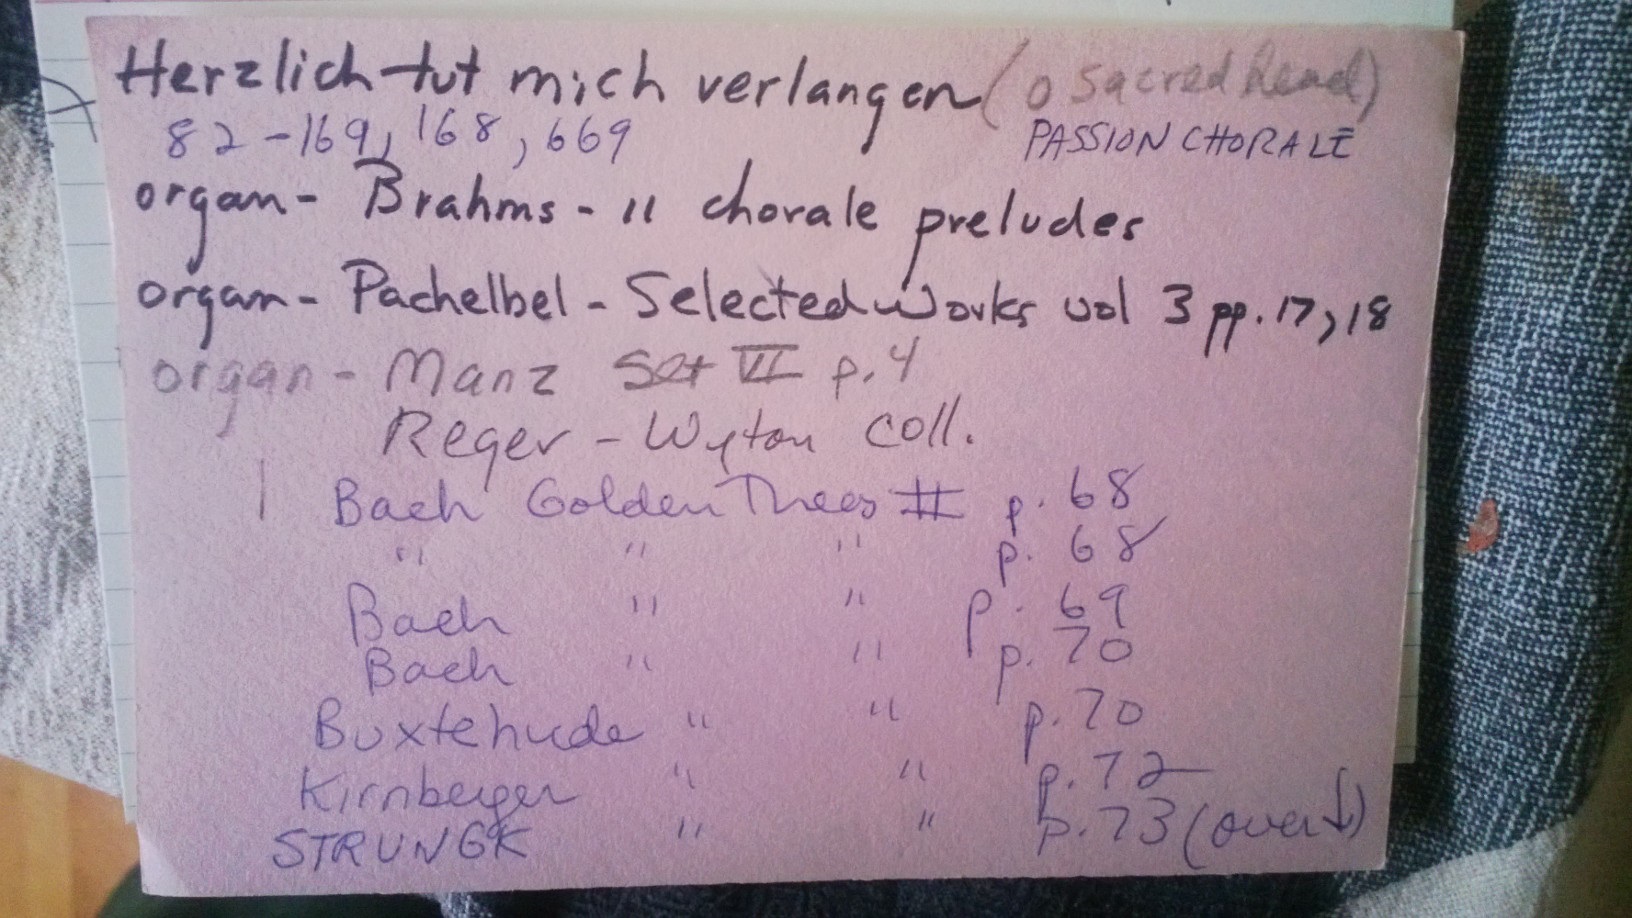 Herzlich tut mich verlangen (O Sacred Head)
82-169, 168, 669 PASSION CHORALE
organ- Brahms - 11 chorale preludes
organ- Pachelbel - Selected Works vol 3 pp. 17, 18
organ - Manz Set VI p. 4
Reger - Wyton coll.
Bach Golden # p. 68
" " " p. 68
Bach " " p. 69
Bach " " p. 70
Buxtehude " " p. 70
Kirnberger " " p. 72
STRUNGK " " p. 73 (over ↓)